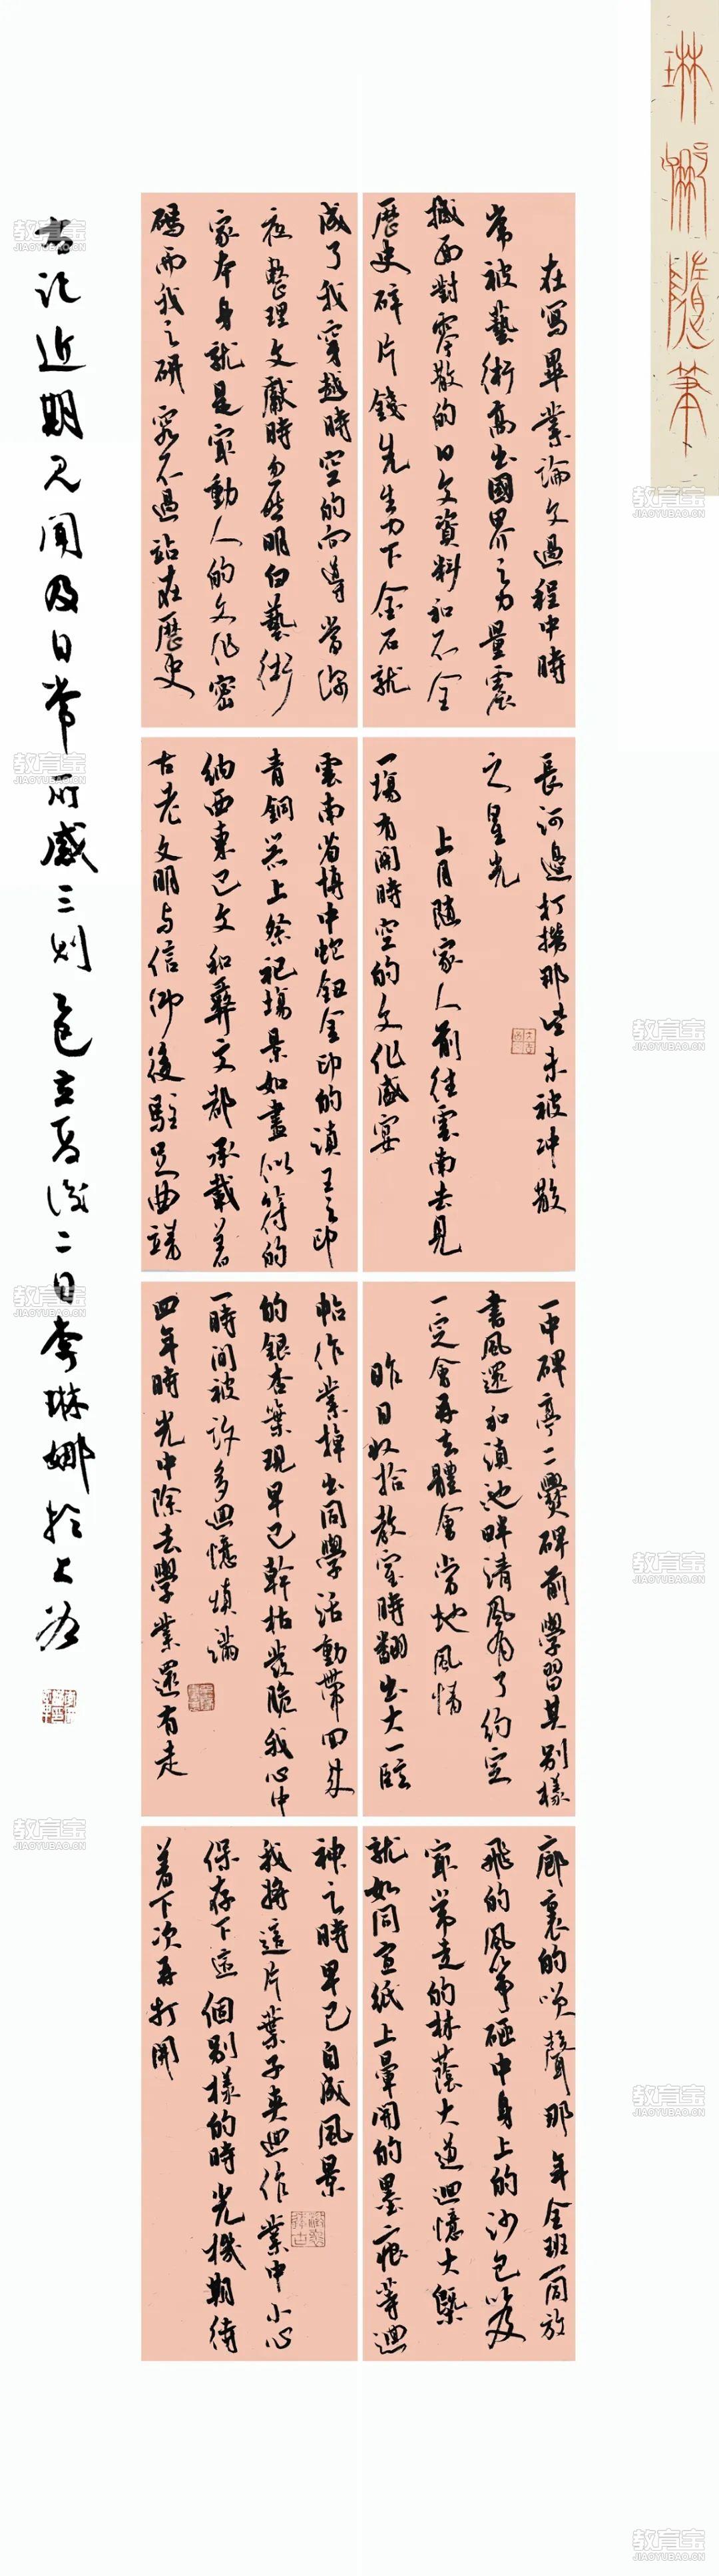 琳娜隨筆
在寫畢業論文過程中時
常被藝術高出國界之力量震
撼面對零散的日文資料和不全
歷史碎片錢先生力下金石就
成了我穿越時空的向導當深
夜整理文獻時忽然明白藝術
家本身就是最動人的文化密
碼而我之研究不過站在歷史
長河邊打撈那些未被沖散
之星光
上月隨家人前往雲南去見
一場有關時空的文化盛宴
雲南省博中蛇鈕金印的滇王之印
青銅器上祭祀場景如畫似符的
納西東巴文和彝文都承載着
古老文明與信仰後駐足曲靖
一中碑亭二爨碑前學習其別樣
書風還和滇池畔清風有了約定
一定會再去體會當地風情
昨日收拾教室時翻出大一臨
帖作業掉出同學活動帶回來
的銀杏葉現早已幹枯發脆我心中
一時間被許多迴憶填滿
四年時光中除去學業還有走
廊裏的笑聲那年全班一同放
飛的風箏砸中身上的沙包以及
最常走的林蔭大道迴憶大概
就如同宣紙上暈開的墨痕等迴
神之時早已自成風景
我將這片葉子夾迴作業中小心
保存下這個別樣的時光機期待
着下次再打開
書記近期見聞及日常所感三則乙巳立夏後二日李琳娜於上谷
教育宝
JIAOYUBAO.CN
教育宝
JIAOYUBAO.CN
教育宝
JIAOYUBAO.CN
教育宝
JIAOYUBAO.CN
教育宝
JIAOYUBAO.CN
教育宝
JIAOYUBAO.CN
教育宝
JIAOYUBAO.CN
教育宝
JIAOYUBAO.CN
教育宝
JIAOYUBAO.CN